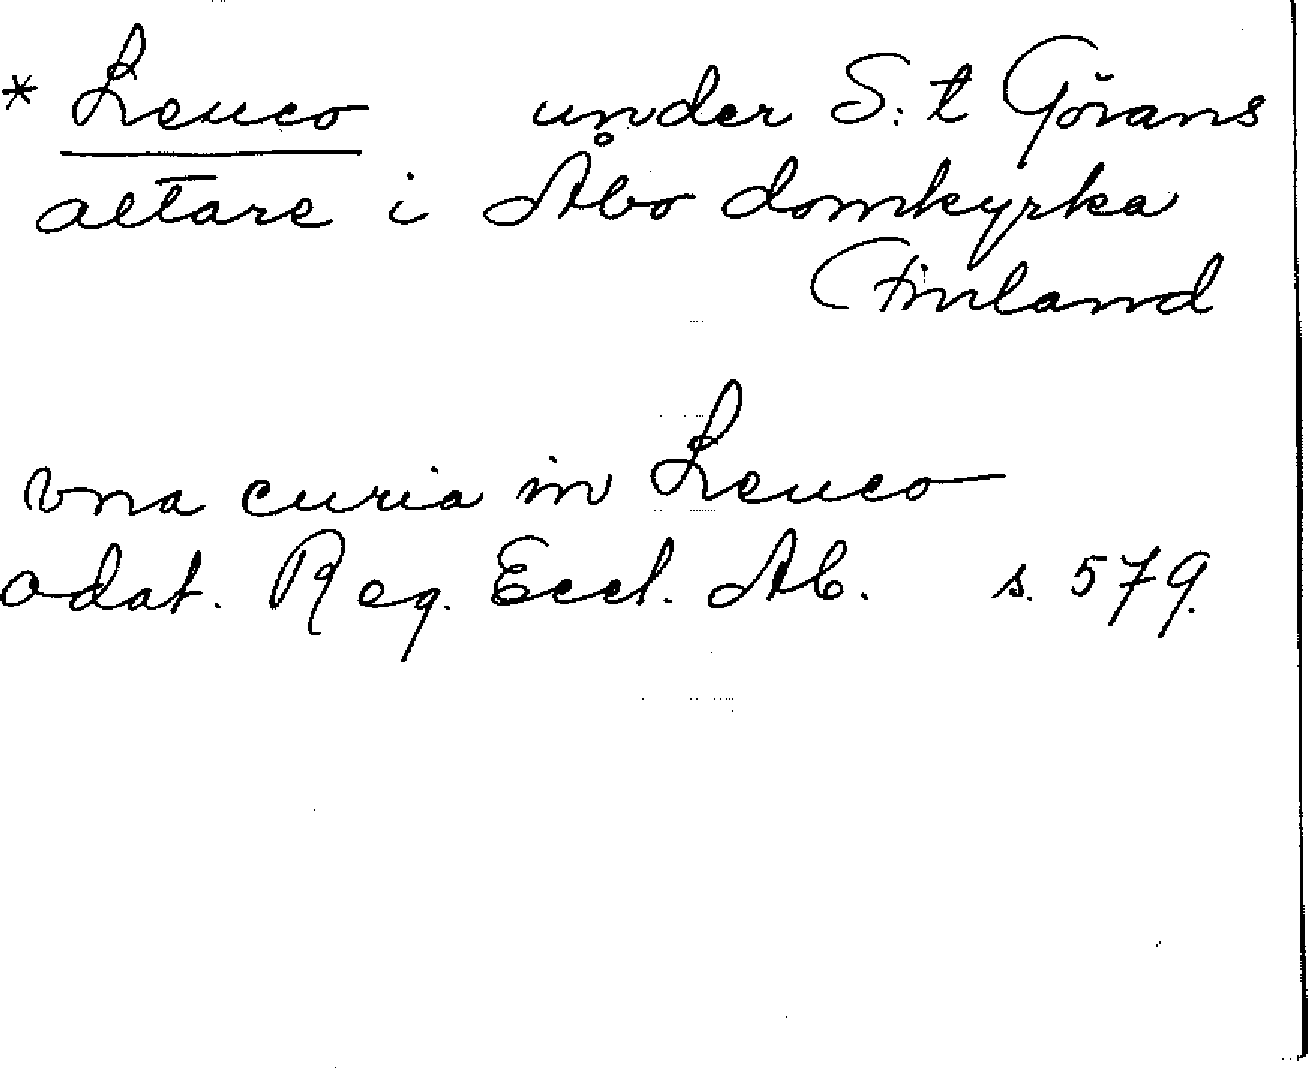 * Leuco under S:t Görans
altare i Åbo domkyrka
Finland
Vna curia in Leuco
odat. Reg. Eccl. Ab. s. 579.